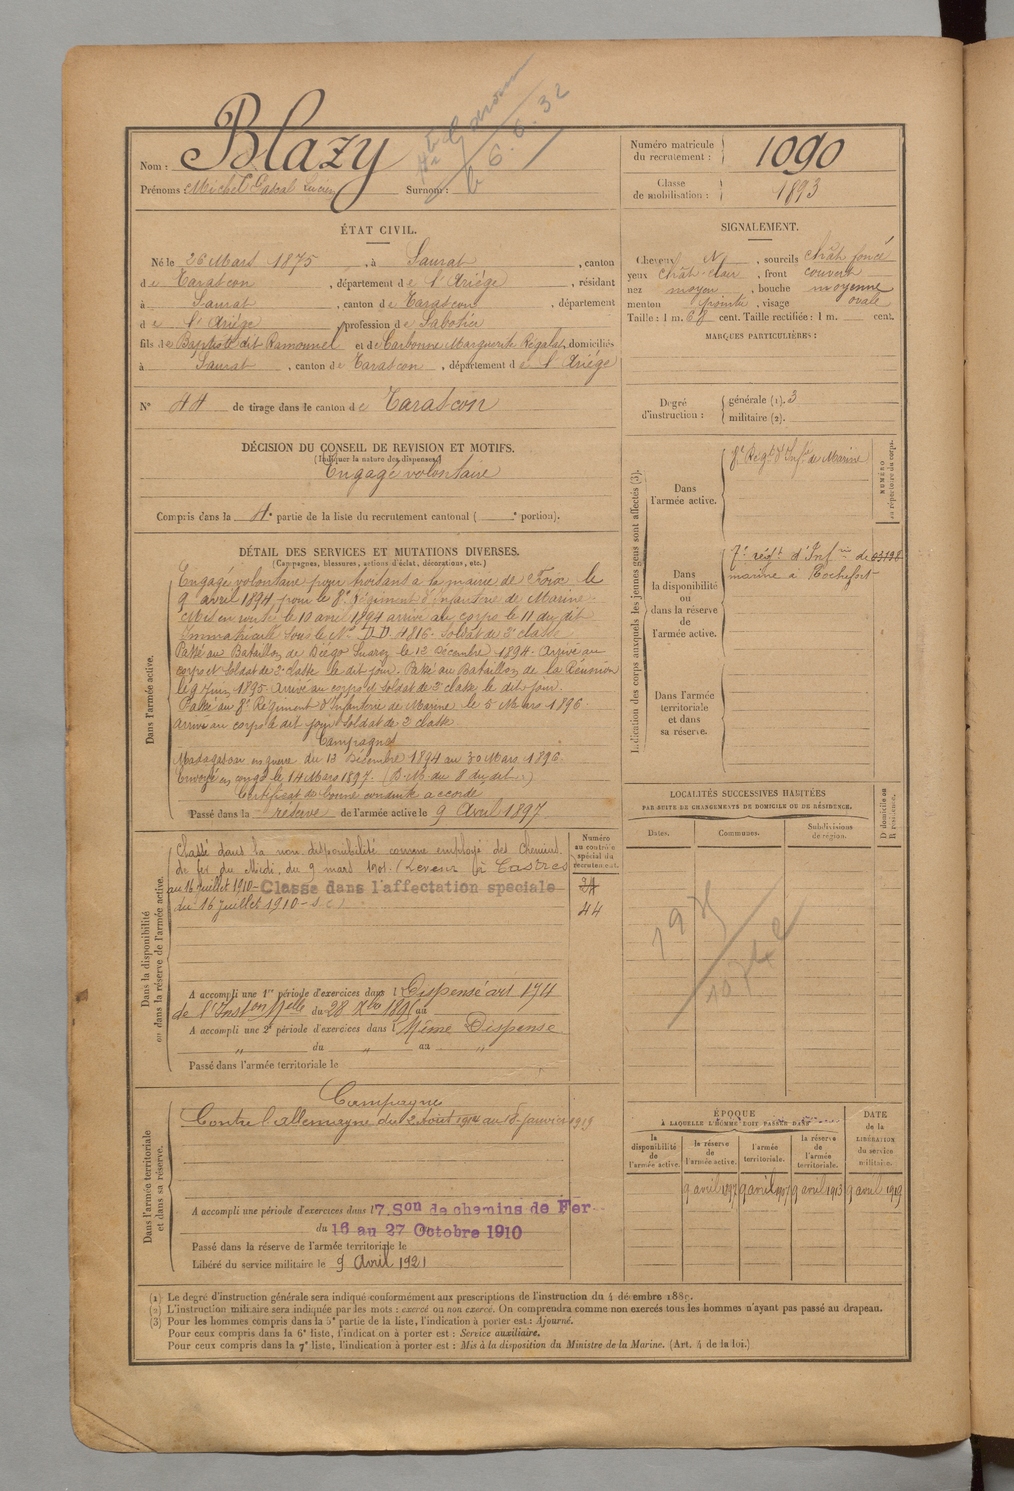 Nom : Blazy
Prénoms : Michel Pascal Lucien Surnom :
6. 6. 32
Numéro matricule du recrutement : 1090
Classe de mobilisation : 1893
ÉTAT CIVIL.
Né le 26 Mars 1875, à Saurat, canton
de Tarascon, département de l'Ariége, résidant
à Saurat, canton de Tarascon, département
de l'Ariége, profession de Sabotier
fils de Baptiste dit Ramounel et de Carbonne Marguerite Régalat, domiciliés
à Saurat, canton de Tarascon, département de l'Ariége
N° 44 de tirage dans le canton de Tarascon
SIGNALEMENT.
Cheveux N, sourcils chât foncé
yeux chât-clair, front couvert
nez moyen, bouche moyenne
menton pointu, visage ovale
Taille : 1 m. 68 cent. Taille rectifiée : 1 m. cent.
MARQUES PARTICULIÈRES :
Degré d'instruction : générale (1). 3
militaire (2).
DÉCISION DU CONSEIL DE REVISION ET MOTIFS.
(Indiquer la nature des dispenses.)
Engagé volontaire
Compris dans la 4e partie de la liste du recrutement cantonal ( e portion).
DÉTAIL DES SERVICES ET MUTATIONS DIVERSES.
(Campagnes, blessures, actions d'éclat, décorations, etc.)
Dans l'armée active.
Engagé volontaire pour trois ans a la mairie de Foix le
9 avril 1894 pour le 8e régiment d'Infanterie de Marine.
Mis en route le 10 avril 1894 arrivé au corps le 11 du dit
Immatriculé sous le No 4816. Soldat de 2e classe
Passé au Bataillon de Diégo Suarez le 12 Décembre 1894. Arrivé au
corps et Soldat de 2e classe le dit jour. Passé au Bataillon de la Réunion
le 9 Juin 1895. Arrivé au corps et Soldat de 2e classe le dit jour.
Passé au 8e Régiment d'Infanterie de Marine le 5 Mars 1896.
Arrivé au corps le dit jour Soldat de 2e classe
Campagnes
Madagascar en guerre du 13 Décembre 1894 au 30 Mars 1896.
Envoyé en congé le 14 Mars 1897. (B. M. du 8 du dit.)
Certificat de bonne conduite accordé
Passé dans la réserve de l'armée active le 9 Avril 1897
Indication des corps auxquels les jeunes gens sont affectés (3).
NUMÉRO au répertoire du corps.
Dans l'armée active.
8e Regt d'Infie de Marine
Dans la disponibilité ou dans la réserve de l'armée active.
7e régt d'Infie de
marine à Rochefort
Dans l'armée territoriale et dans sa réserve.
LOCALITÉS SUCCESSIVES HABITÉES
PAR SUITE DE CHANGEMENTS DE DOMICILE OU DE RÉSIDENCE.
Dates. Communes. Subdivisions de région. D domicile ou R résidence.
Dans la disponibilité ou dans la réserve de l'armée active.
Numéro au contrôle spécial du recrutement.
Classé dans la non disponibilité comme employé des chemins
de fer du Midi, du 9 mars 1901. à Castres
au 16 juillet 1910 - Classé dans l'affectation spéciale
du 16 juillet 1910 -
44
A accompli une 1re période d'exercices dans l Dispensé art 174
de l'Inston Melle du 28 Xbre au
A accompli une 2e période d'exercices dans l Même Dispense
" du " au "
Passé dans l'armée territoriale le
Dans l'armée territoriale et dans sa réserve.
Campagne
Contre l'allemagne du 2 Août 1914 au 15 janvier 1919
A accompli une période d'exercices dans l 7. Son de chemins de Fer
du 16 au 27 Octobre 1910
Passé dans la réserve de l'armée territoriale le
Libéré du service militaire le 9 Avril 1921
ÉPOQUE
À LAQUELLE L'HOMME DOIT PASSER DANS
la disponibilité de l'armée active. la réserve de l'armée active. l'armée territoriale. la réserve de l'armée territoriale. DATE de la LIBÉRATION du service militaire.
9 avril 1897 9 avril 1907 9 avril 1913 9 avril 1919
(1) Le degré d'instruction générale sera indiqué conformément aux prescriptions de l'instruction du 4 décembre 1889.
(2) L'instruction militaire sera indiquée par les mots : exercé ou non exercé. On comprendra comme non exercés tous les hommes n'ayant pas passé au drapeau.
(3) Pour les hommes compris dans la 5e partie de la liste, l'indication à porter est : Ajourné.
Pour ceux compris dans la 6e liste, l'indication à porter est : Service auxiliaire.
Pour ceux compris dans la 7e liste, l'indication à porter est : Mis à la disposition du Ministre de la Marine. (Art. 4 de la loi.)